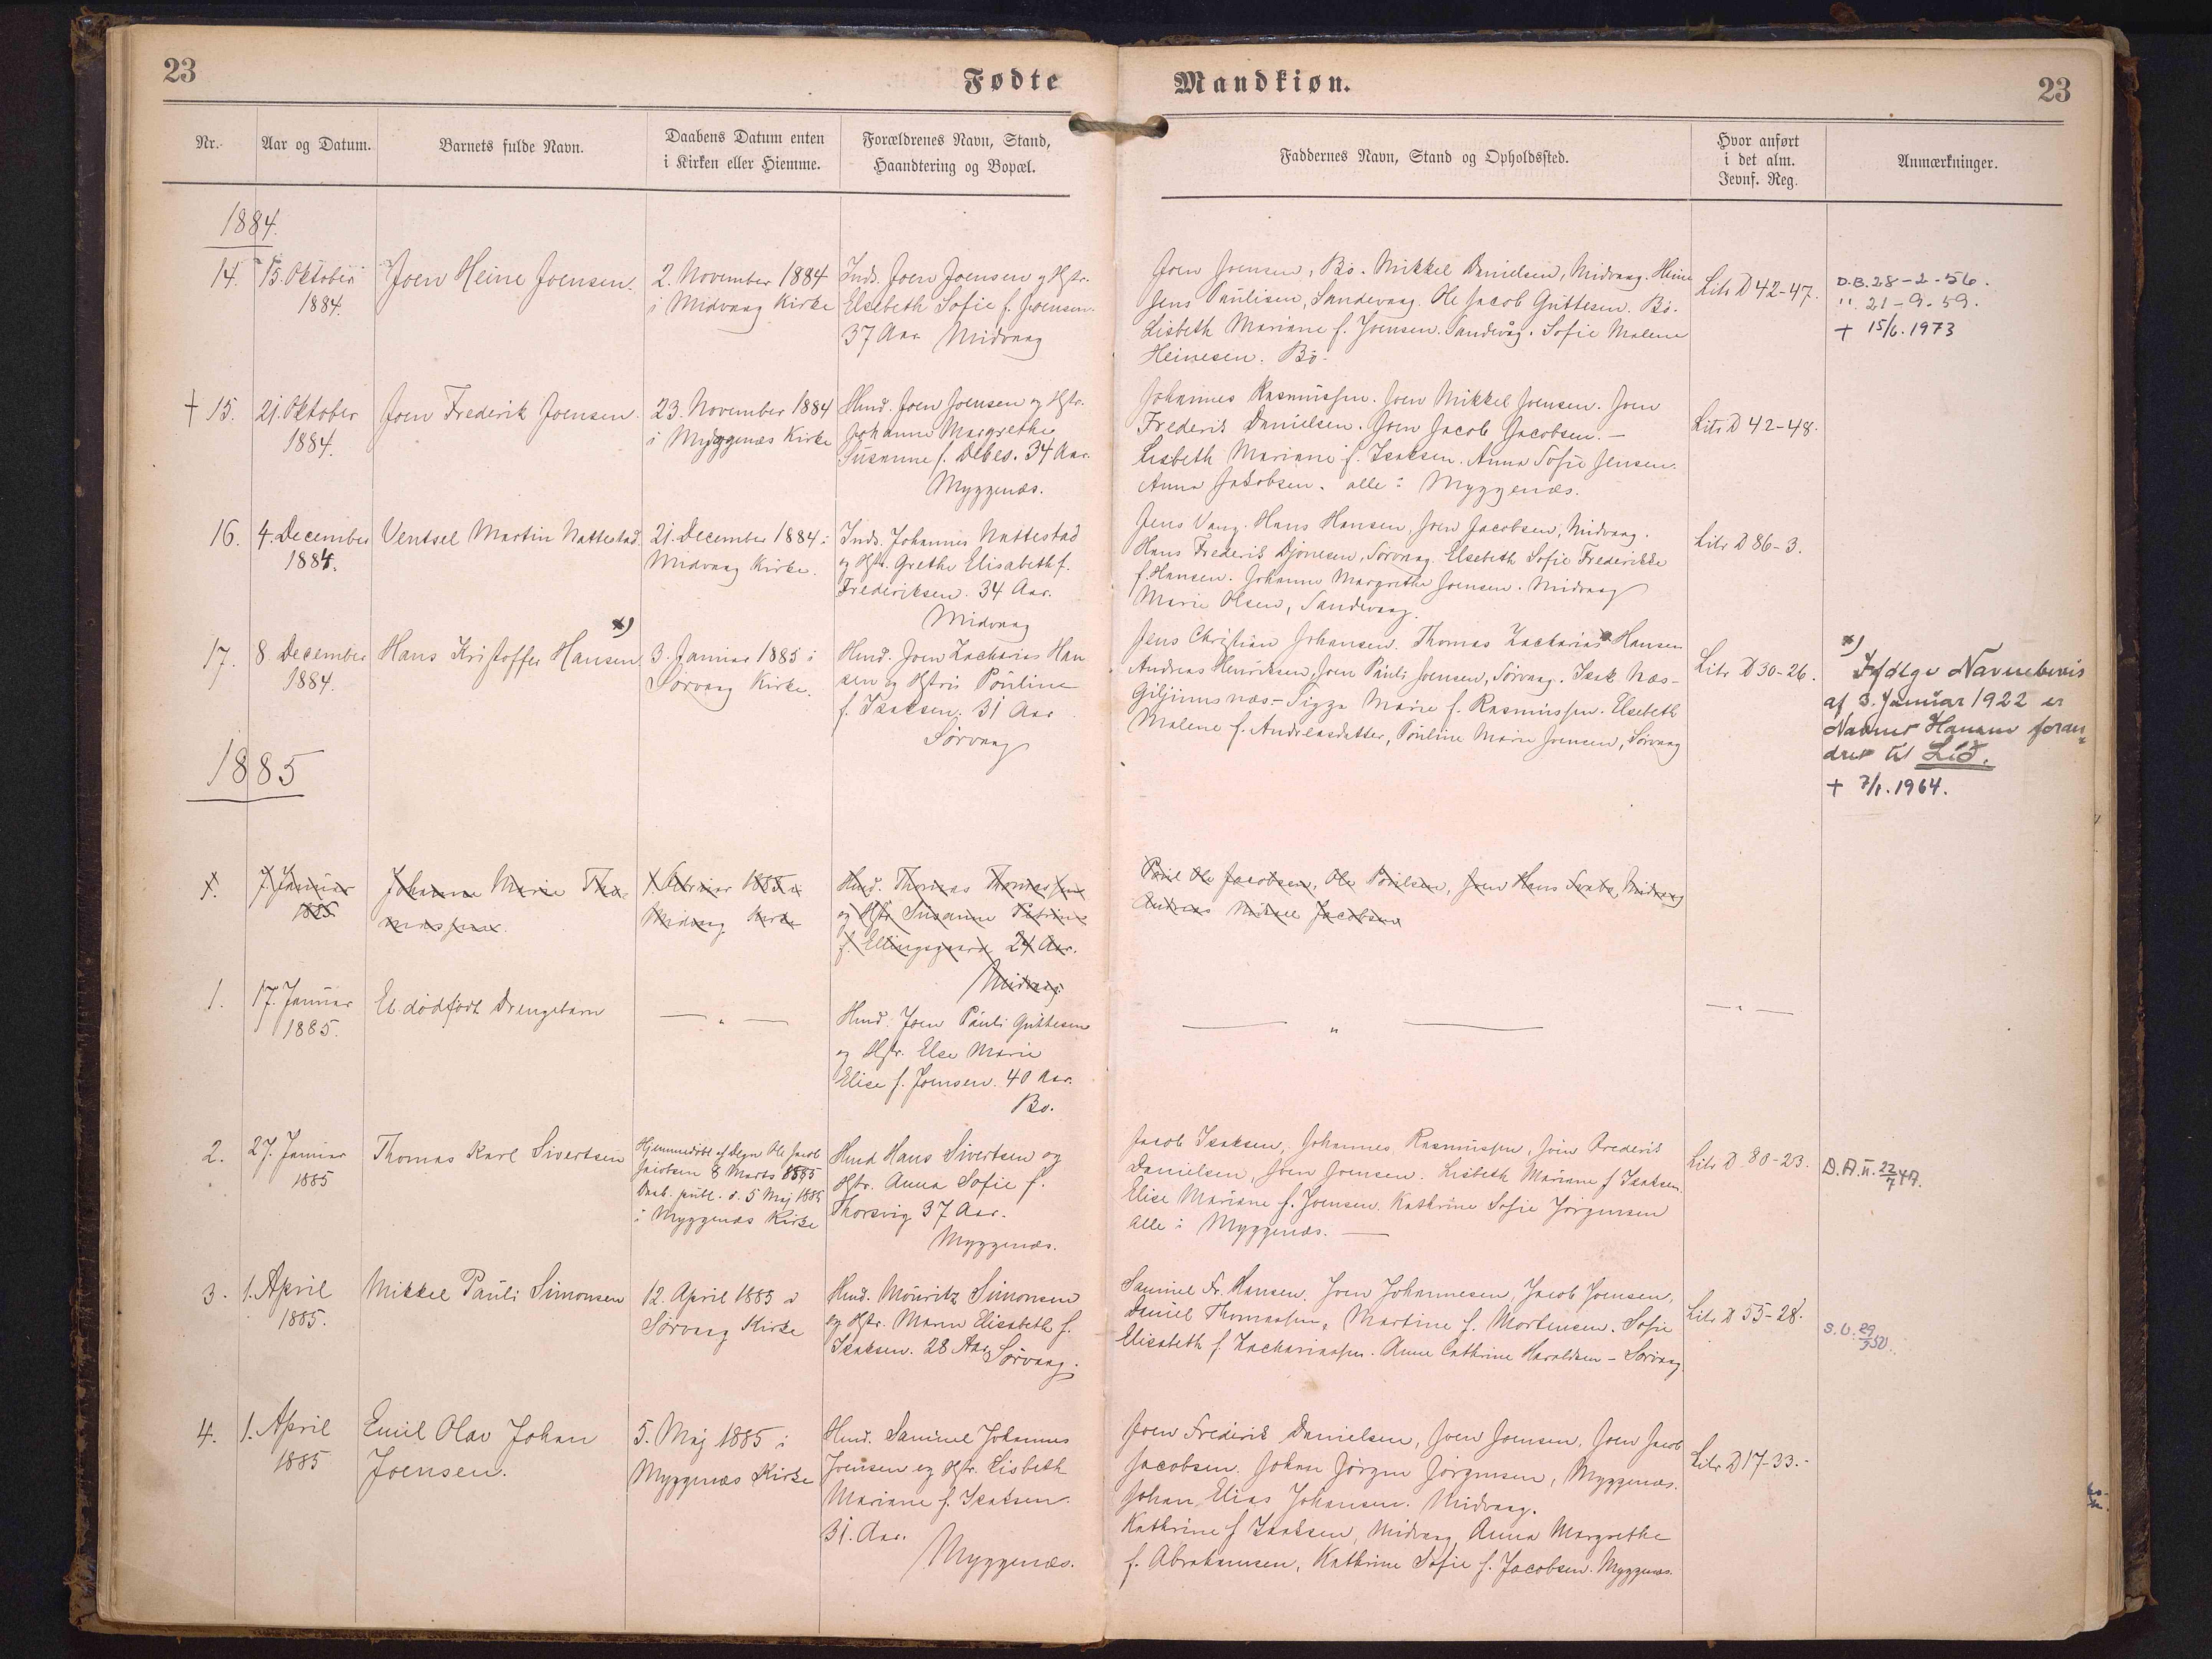 23
Fødte
Mandkiøn.
23
Nr.
Aar og Datum.
Barnets fulde Navn.
Daabens Datum enten
i Kirken eller Hiemme.
Forældrenes Navn, Stand,
Haandtering og Bopæl.
Faddernes Navn, Stand og Opholdssted.
Hvor anført
i det alm.
Jevnf. Reg.
Anmærkninger.
1884.
14.
15. Oktober
1884.
Joen Heine Joensen.
2. November 1884
i Midvaag Kirke
Inds. Joen Joensen og Hstr.
Elsebeth Sofie f. Joensen.
37 Aar Midvaag
Joen Joensen, Bö. Mikkel Danielsen, Midvaag. Heine
Jens Paulisen, Sandevaag. Ole Jacob Guttesen. Bö.
Lisbeth Mariane f. Joensen. Sandevåg. Sofie Malene
Heinesen. Bö.
Litr D 42-47.
D.B. 28-2-56.
" 21-9-59.
+ 15/6. 1973
+ 15.
21. Oktober
1884.
Joen Frederik Joensen.
23. November 1884
i Myggenæs Kirke
Hmd. Joen Joensen og Hstr.
Johanne Margrethe
Susanne f. Debes. 34 Aar.
Myggenæs.
Johannes Rasmussen. Joen Mikkel Joensen. Joen
Frederik Danielsen. Joen Jacob Jacobsen. —
Lisbeth Mariane f. Isaksen. Anna Sofie Jensen.
Anna Jakobsen. alle: Myggenæs.
Litr D 42-48.
16.
4. December
1884.
Ventsel Martin Nattestad.
21. December 1884 i
Midvaag Kirke.
Inds. Johannes Nattestad
og Hstr. Grethe Elisabeth f.
Frederiksen. 34 Aar.
Midvaag
Jens Vang. Hans Hansen, Joen Jacobsen, Midvaag.
Hans Frederik Djonesen, Sörvaag. Elsebeth Sofie Frederikke
f. Hansen. Johanne Margrethe Joensen. Midvaag
Marie Olsen, Sandevaag.
Litr D 86-3.
17.
8 December
1884.
Hans Kristoffer Hansen x)
3. Januar 1885 i
Sörvaag Kirke.
Hmd. Joen Zacharias Han
sen og Hstris Pouline
f. Isaksen. 31 Aar
Sörvaag
Jens Christian Johansen. Thomas Zacharias Hansen
Andreas Henriksen, Joen Pauli Joensen, Sörvaag. Isak Næs-
Giljiimsnæs. Sigga Marie f. Rasmussen. Elsebeth
Malene f. Andreasdatter, Pouline Marie Joensen, Sörvaag
Litr D 30-26.
x)
Ifølge Navnebevis
af 3. Januar 1922 er
Navnet Hansen foran=
dret til Lið.
+ 7/1. 1964.
1885
1.
7. Januar
1885
Johanne Marie Tho-
massen.
1 Februar 1885 i
Midvaag Kirke
Hmd. Thomas Thomassen
og Hstr Susanne Petrine
f. Ellingsgaard 24 Aar.
Midvaag.
Paul Ole Jacobsen, Ole Poulsen, Joen Hans Midvaag
Andreas Mikkel Jacobsen
1.
17. Januar
1885.
Et dødfødt Drengebarn
— " —
Hmd. Joen Pauli Guttesen
og Hstr. Else Marie
Elise f. Joensen. 40 Aar.
Bö.
— " —
— " —
2.
27. Januar
1885
Thomas Karl Sivertsen
Hjemmedöbt af Degn Ole Jacob
Jacobsen 8 Marts 1885
Daab. publ. d. 5 Maj 1885
i Myggenæs Kirke
Hmd Hans Sivertsen og
Hstr. Anna Sofie f.
Thorsvig 37 Aar.
Myggenæs.
Jacob Isaksen, Johannes Rasmussen, Joen Frederik
Danielsen, Joen Joensen. Lisbeth Mariane f Isaksen.
Elise Mariane f. Joensen. Kathrine Sofie Jörgensen
alle i Myggenæs. —
Litr D. 80-23.
D.A.u. 22/7 47.
3.
1. April
1885.
Mikkel Pauli Simonsen
12 April 1885 i
Sörvaag Kirke
Hmd. Mouritz Simonsen
og Hstr. Maren Elisabeth f.
Isaksen. 28 Aar
Sörvaag.
Samuel Fr. Hansen. Joen Johannesen, Jacob Joensen,
Daniel Thomassen, Martine f. Mortensen. Sofie
Elisabeth f. Zachariassen. Anne Cathrine Haraldsen - Sörvaag
Litr D 55-28.
S.U. 29/3 50.
4.
1. April
1885
Emil Olav Johan
Joensen.
5. Maj 1885 i
Myggenæs Kirke
Hmd. Samuel Johannes
Joensen og Hstr. Lisbeth
Mariane f. Isaksen.
31. Aar.
Myggenæs.
Joen Frederik Danielsen, Joen Joensen, Joen Jacob
Jacobsen. Johan Jörgen Jörgensen, Myggenæs.
Johan Elias Johansen. Midvaag.
Kathrine f Isaksen, Midvaag Anna Margrethe
f. Abrahamsen, Kathrine Sofie f. Jacobsen. Myggenæs.
Litr D 17-33.